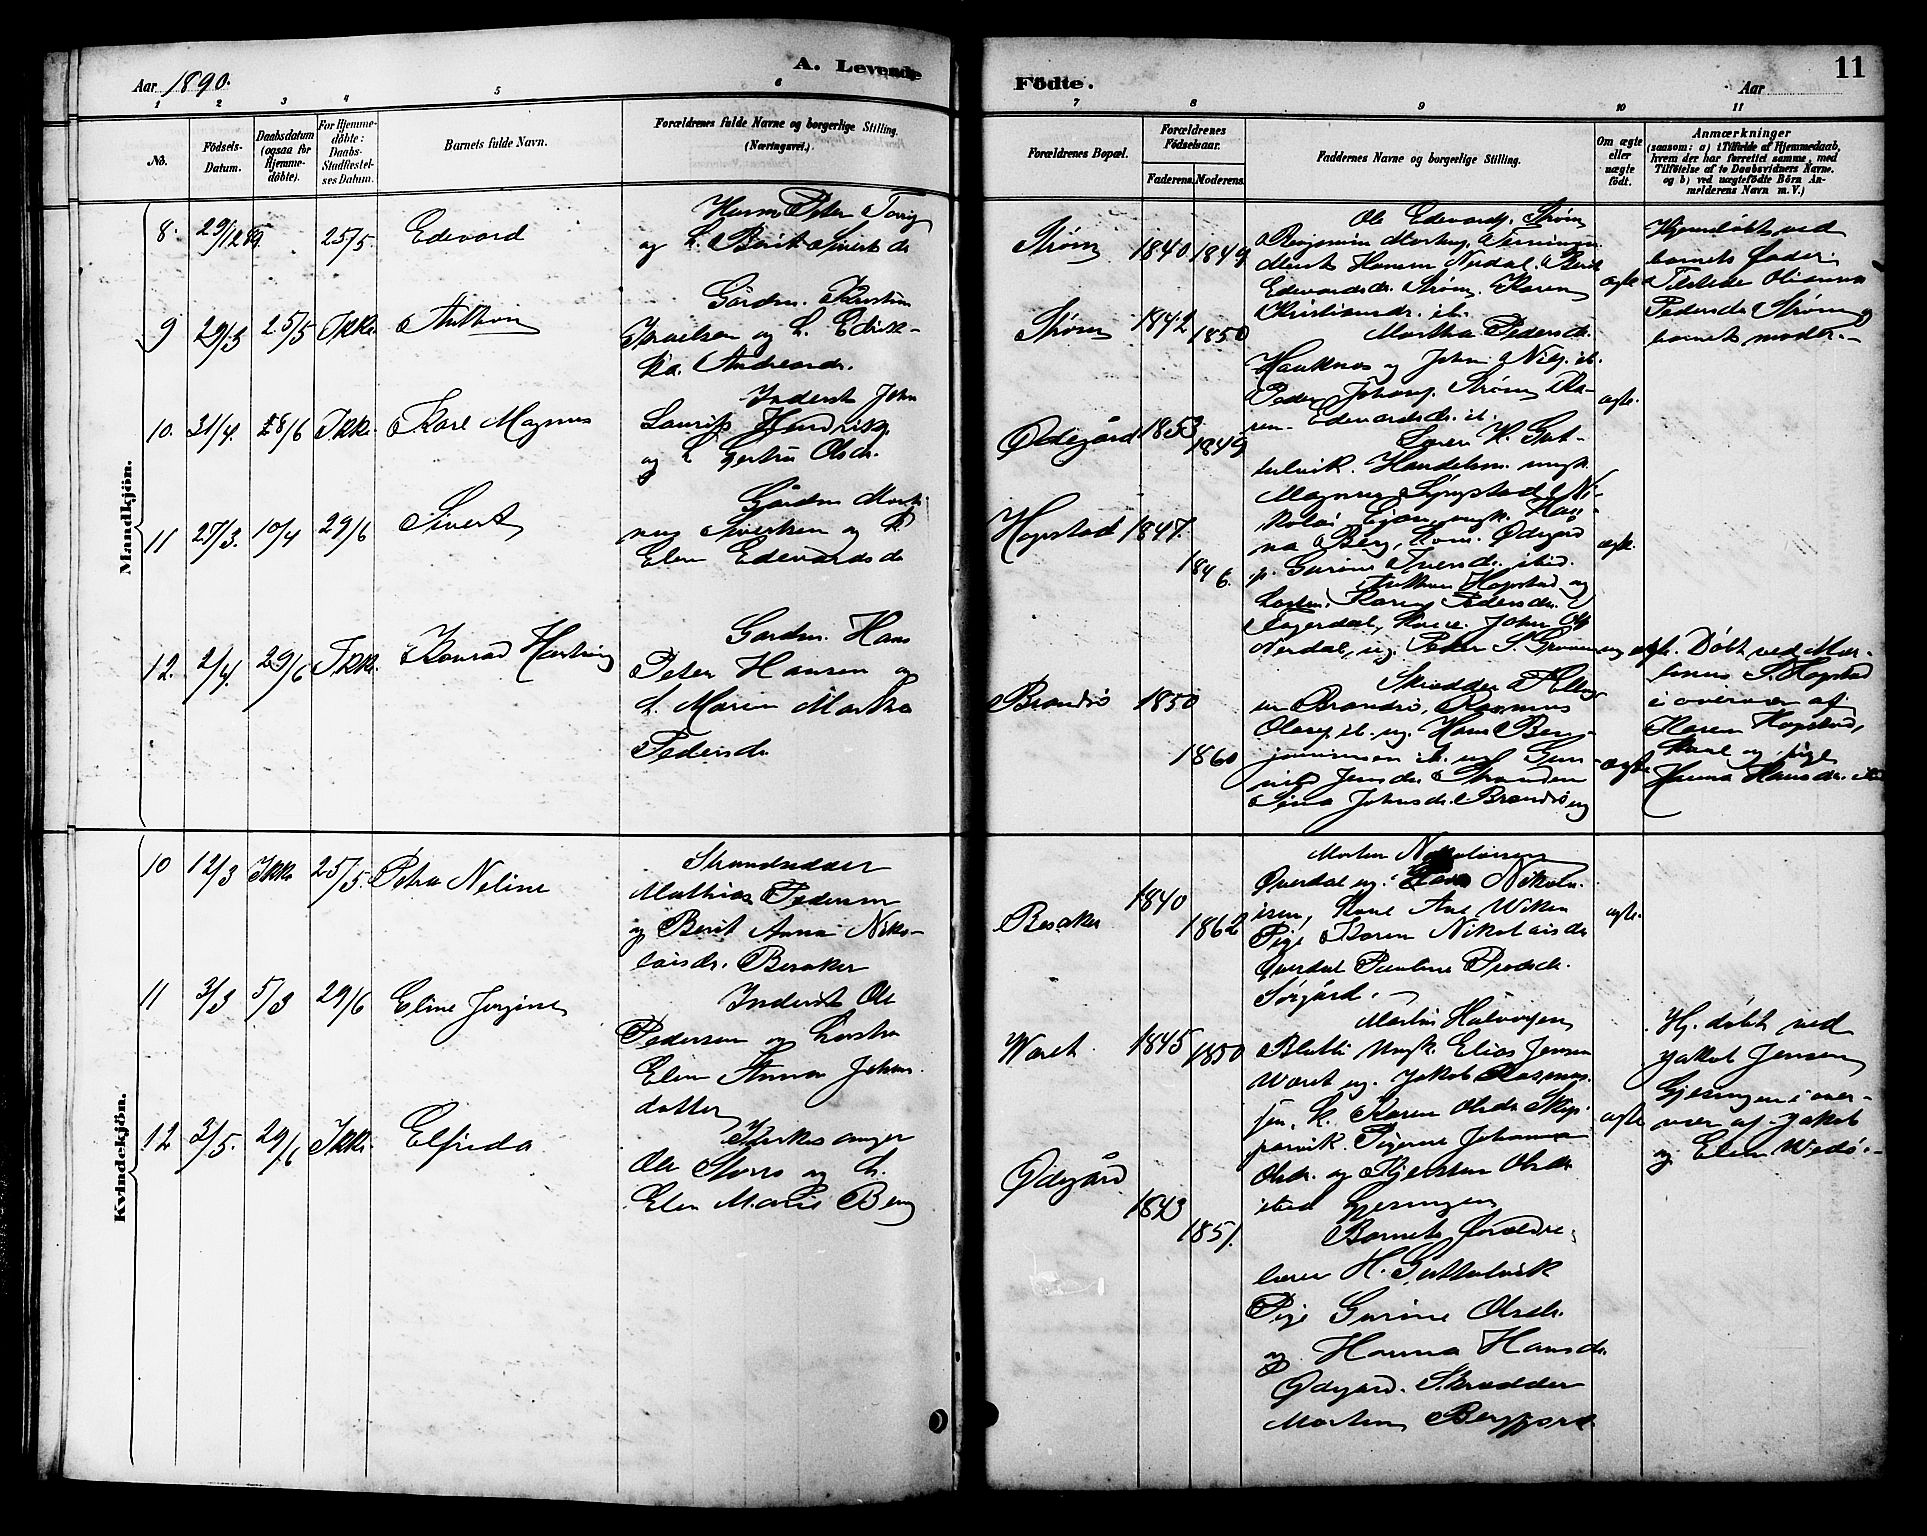 Aar 1890.
A. Levende
Födte.
Aar
11
1 2 3 4 5 6 7 8 9 10 11
No.
Födsels-
Datum.
Daabsdatum
(ogsaa for
Hjemme-
döbte).
For Hjemme-
döbte:
Daabs-
Stadfæstel-
ses Datum.
Barnets fulde Navn.
Forældrenes fulde Navne og borgerlige Stilling.
(Næringsvei.)
Forældrenes Bopæl.
Forældrenes
Födselsaar.
Faderens. Moderens.
Faddernes Navne og borgerlige Stilling.
Om ægte
eller
uægte
födt.
Anmærkninger
(saasom: a) i Tilfælde af Hjemmedaab,
hvem der har forrettet samme, med
Tilföielse af to Daabsvidners Navne.
og b) ved uægtefödte Börn An-
melderens Navn m. V.)
Mandkjön.
8. 29/12 89. 25/5 Edevard
Husm. Peter
og h. Berit Sivertsdr
Strøm 1840 1849
Ole Edevards. Strøm
Benjamin
Hansen Nerdal. Berit
Edevardsdr. Strøm. Karen
Kristiansdr. ib.
ægte
Hjemdøbt ved
barnets Fader
Tilstede Olianna
Pedersdr Strøm og
barnets moder.
9 29/3 25/5 Ikke Anthon
Gårdm. Kristian
Israelsen og h. Edisk-
ka. Andreasdr.
Strøm 1842 1850
Martha Pedersdr.
Hauknes og John Nils. ib.
Peder Johans. Strøm Ka-
ren Edevardsdr. ib.
ægte.
10. 31/4. 28/6 Ikke. Karl Magnus
Inderst John
Laurits Hendriks.
og h Gjertru Olsdr.
Ødegård 1853 1849
Lærer H. Gut-
tulvik. Handelsm. ungk.
Magnus Lyngstad Ni-
kolai ungk. Han-
na Berg, Kone. Ødegård
p. Gurine ibid.
ægte.
11 27/3. 10/4 29/6 Sivert
Gårdm Mort-
nus Sivertsen og h.
Elen Edevardsdr
Hopstad 1847. 1846.
Anthon Hopstad og
hustru Karen Pedersdr.
Fagerdal, Kone. John Ols
Nerdal, ug. Peder S.
ægte. Døbt ved Mor-
tinus S. Hopstad
i overvær af
Karen Hopstad,
Kone og pige
Hanna Hansdr.
12. 2/4. 29/6 Ikke. Konrad Hartvig
Gårdm. Hans
Peter Hansen og
h. Maren Martha
Pedersdr
Brandsø 1850 1860
Skrædder
Brandsø, Rasmus
Olsen ib. ug. Hans Ben-
jaminsen ib. ug. Gun-
nild Jensdr. Stranden
Sina Johnsdr. Brandsø ug
ægte
Kvindekjön.
10 12/3 Ikke 25/5. Petra Neline
Strandsidder
Mathias Pedersen
og Berit Anna Niko-
laisdr. Besaker
Besaker 1840 1862
Morten Nikolaisen
Overdal ug. Nikola-
isen, Kone Ane Wiken
Pige Karen Nikolaisdr
Overdal Pauline
Sørgård.
ægte.
11 3/3 5/3 29/6 Eline Jørgine
Inderst Ole
Pedersen og hustru
Elen Anna Johns-
datter
Waret 1845 1850
Martin Halvorsen
Blatti Ungk. Elias Jensen
Waret ug. Jakob Rasmus-
sen, h. Karen Olsdr Skip-
parvik. Pigerne Johanna
Olsdr. og Kjersten Olsdr
ibid Gjesingen
ægte
Hj. døbt ved
Jakob Jensen
Gjesingen i over-
vær af Jakob
og Elen Wedø.
12 3/5. 29/6 Ikke. Elfrida
Kirkesanger
Ole Storrø og h.
Elen Marie Berg
Ødegård 1843 1851.
Barnets forældre,
lærer H. Guttulvik
Pige Gurine Olsdr.
og Hanna Hansdr.
Ødegård. Skrædder
Morten Bergfjord